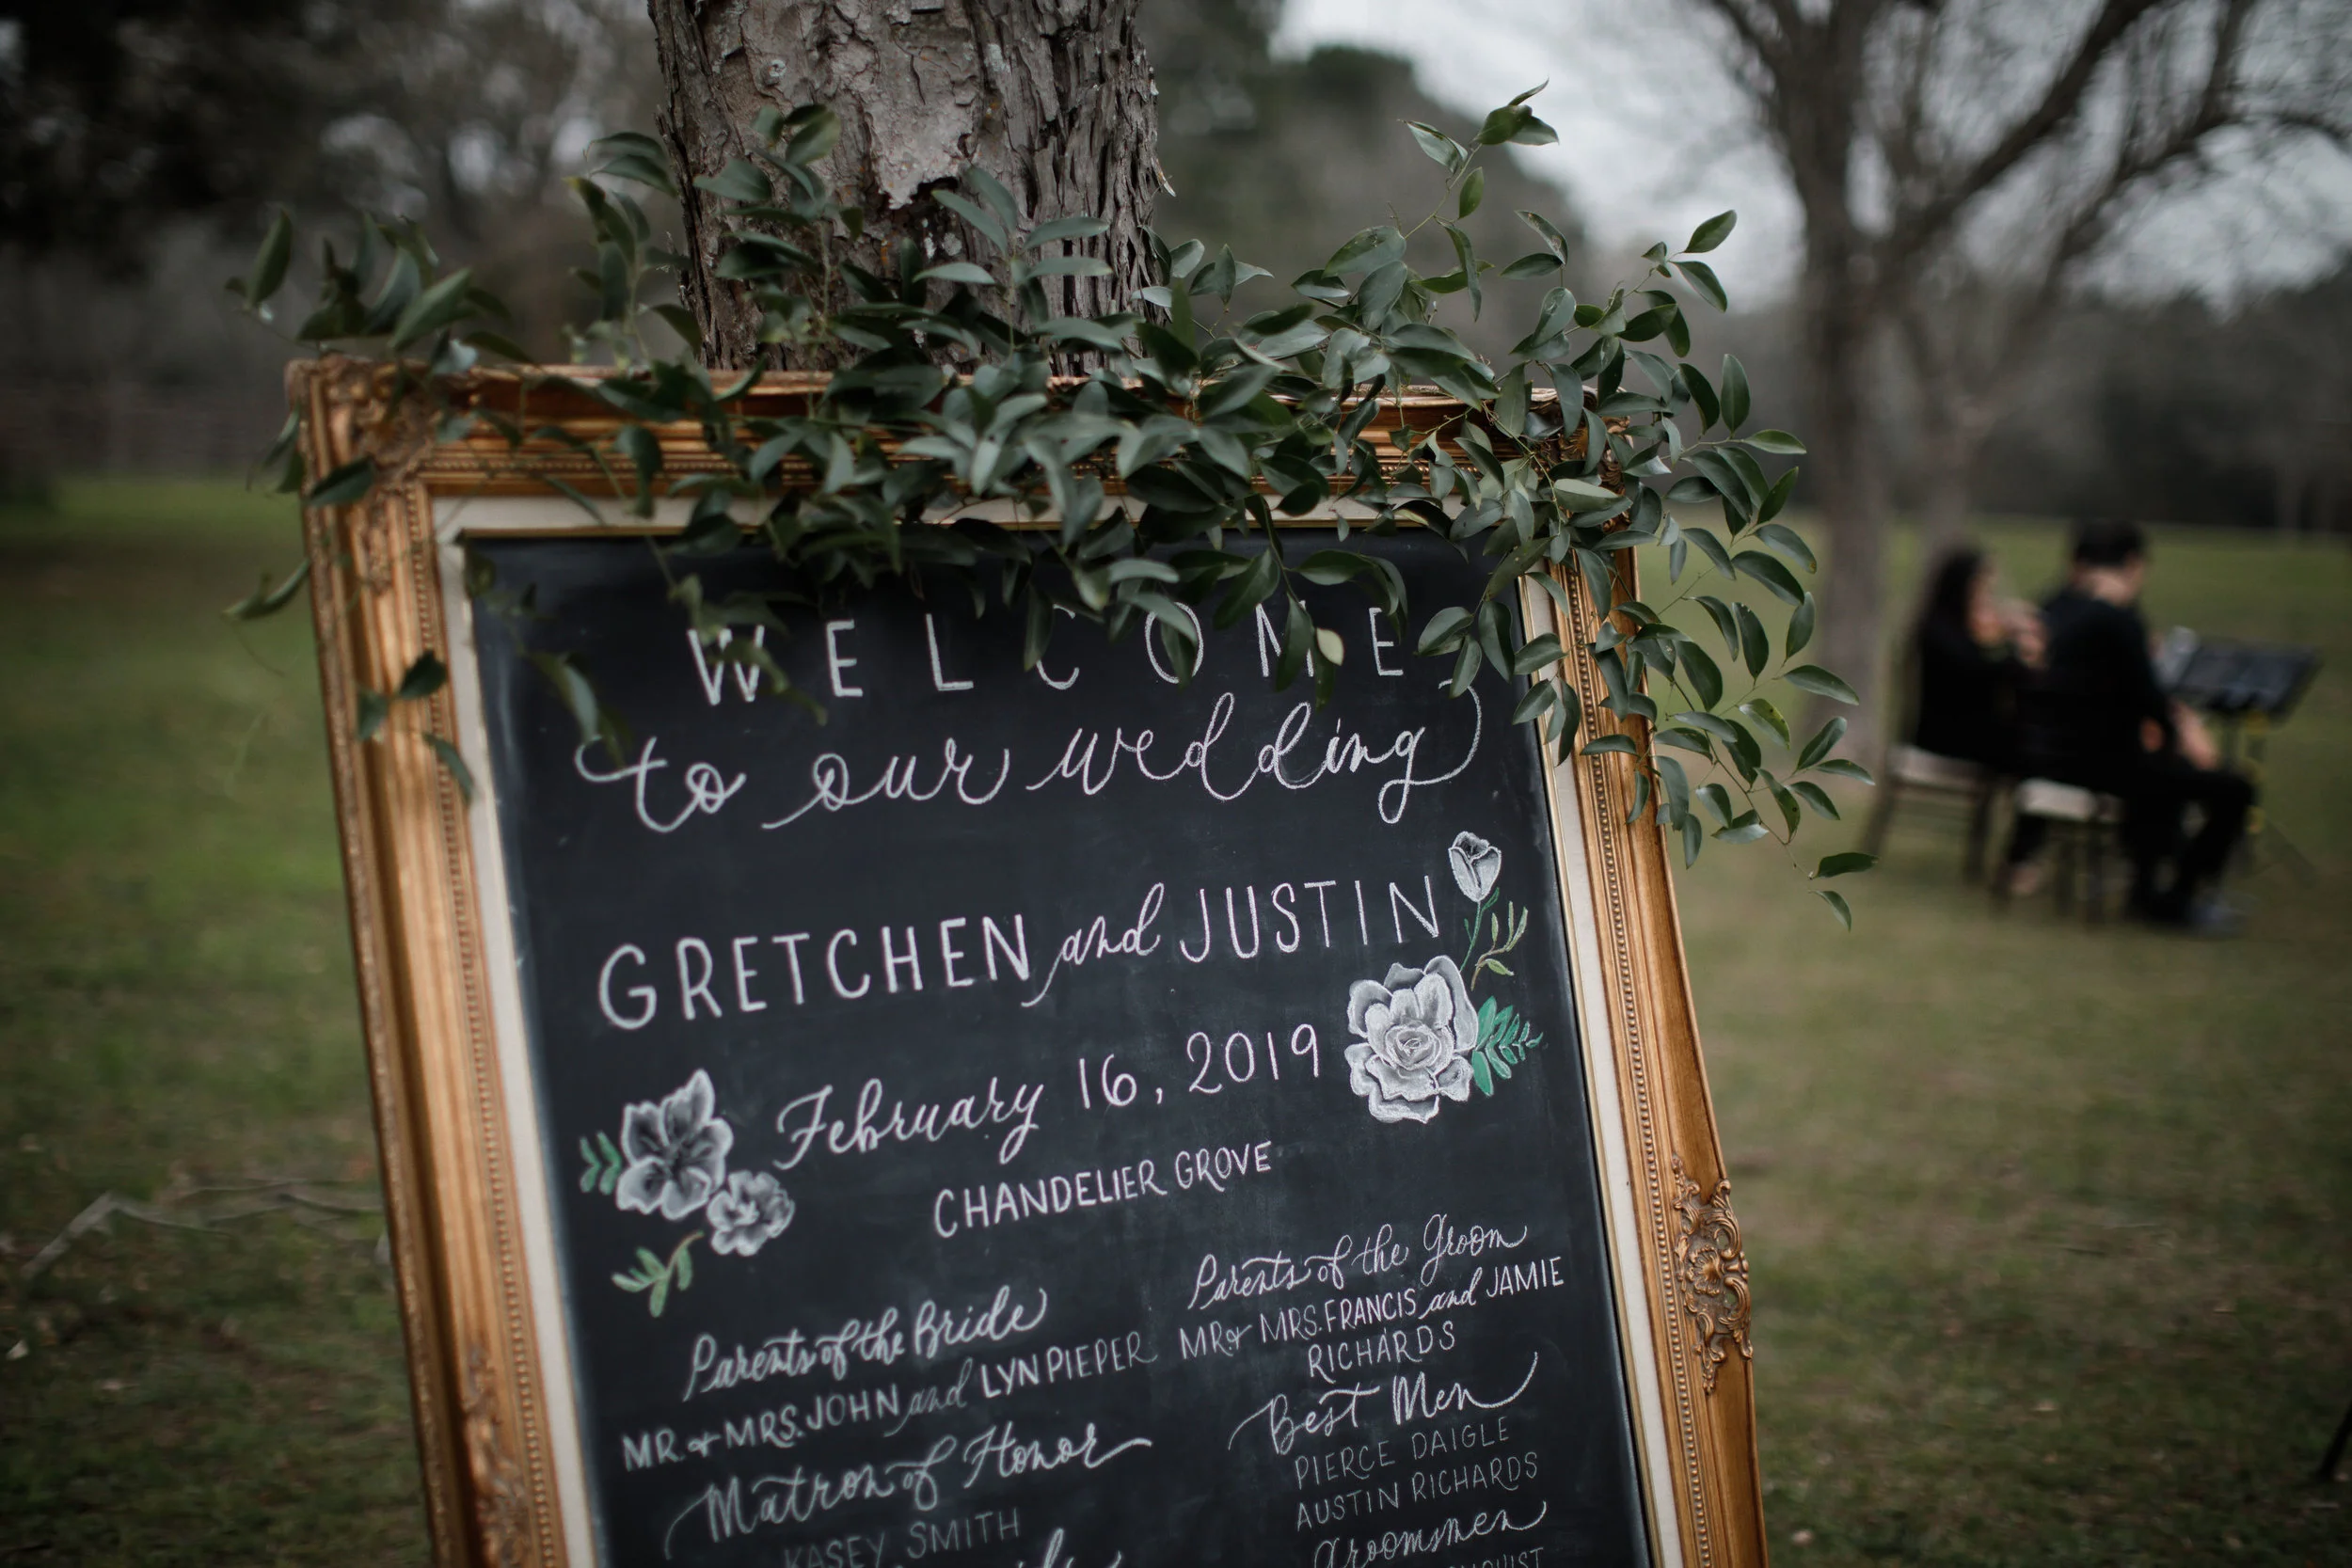 WELCOME
to our wedding
GRETCHEN and JUSTIN
February 16, 2019
CHANDELIER GROVE
Parents of the Bride
MR. & MRS. JOHN and LYN PIEPER
Matron of Honor
KASEY SMITH
Parents of the Groom
MR & MRS. FRANCIS and JAMIE
RICHARDS
Best Men
PIERCE DAIGLE
AUSTIN RICHARDS
Groomsmen